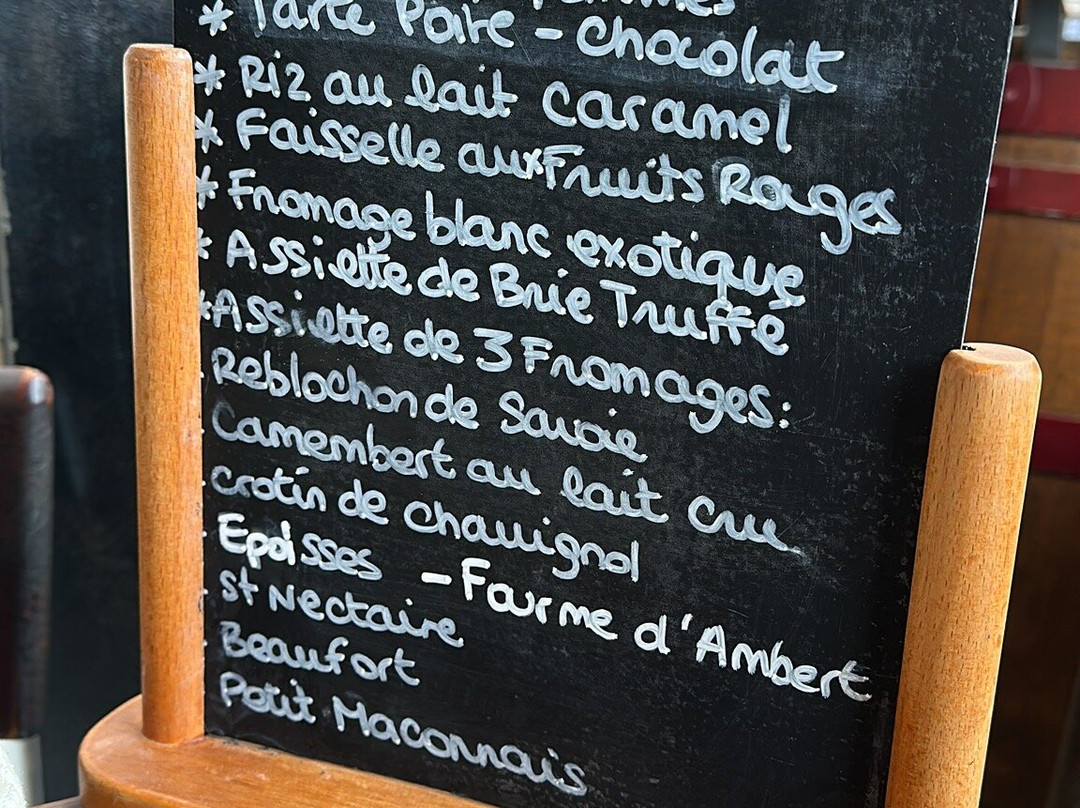 * Tarte Poire - Chocolat
* Riz au lait Caramel
* Faisselle aux Fruits Rouges
* Fromage blanc exotique
* Assiette de Brie Truffé
* Assiette de 3 Fromages:
- Reblochon de Savoie
- Camembert au lait cru
- Crotin de chavignol
- Epoisses - Fourme d'Ambert
- St Nectaire
- Beaufort
- Petit Maconnais